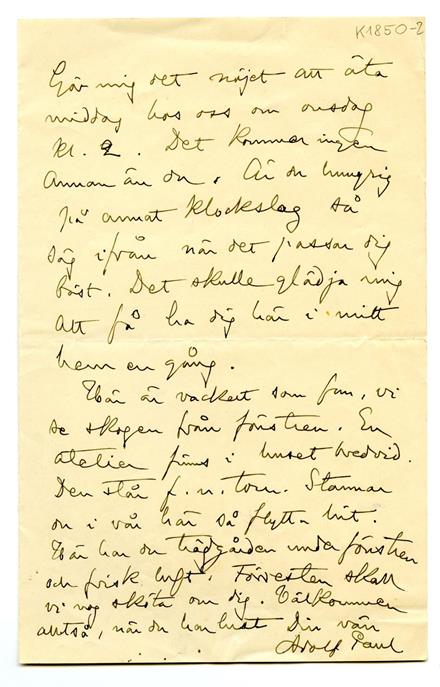 K1850-2
Gör mig det nöjet att äta
middag hos oss om onsdag
kl. 2. Det kommer ingen
annan än du. Är du hungrig
på annat klockslag så
säg ifrån när det passar dig
bäst. Det skulle glädja mig
att få ha dig här i mitt
hem en gång.
Här är vackert som fan, vi
se skogen från fönstren. En
atelier finns i huset bredvid.
Den står f. n. tom. Stannar
du i vår här så flytta hit.
Här har du trädgården under fönstren
och frisk luft. Förresten skall
vi nog sköta om dig. Välkommen
alltså, när du har lust Din vän
Adolf Paul